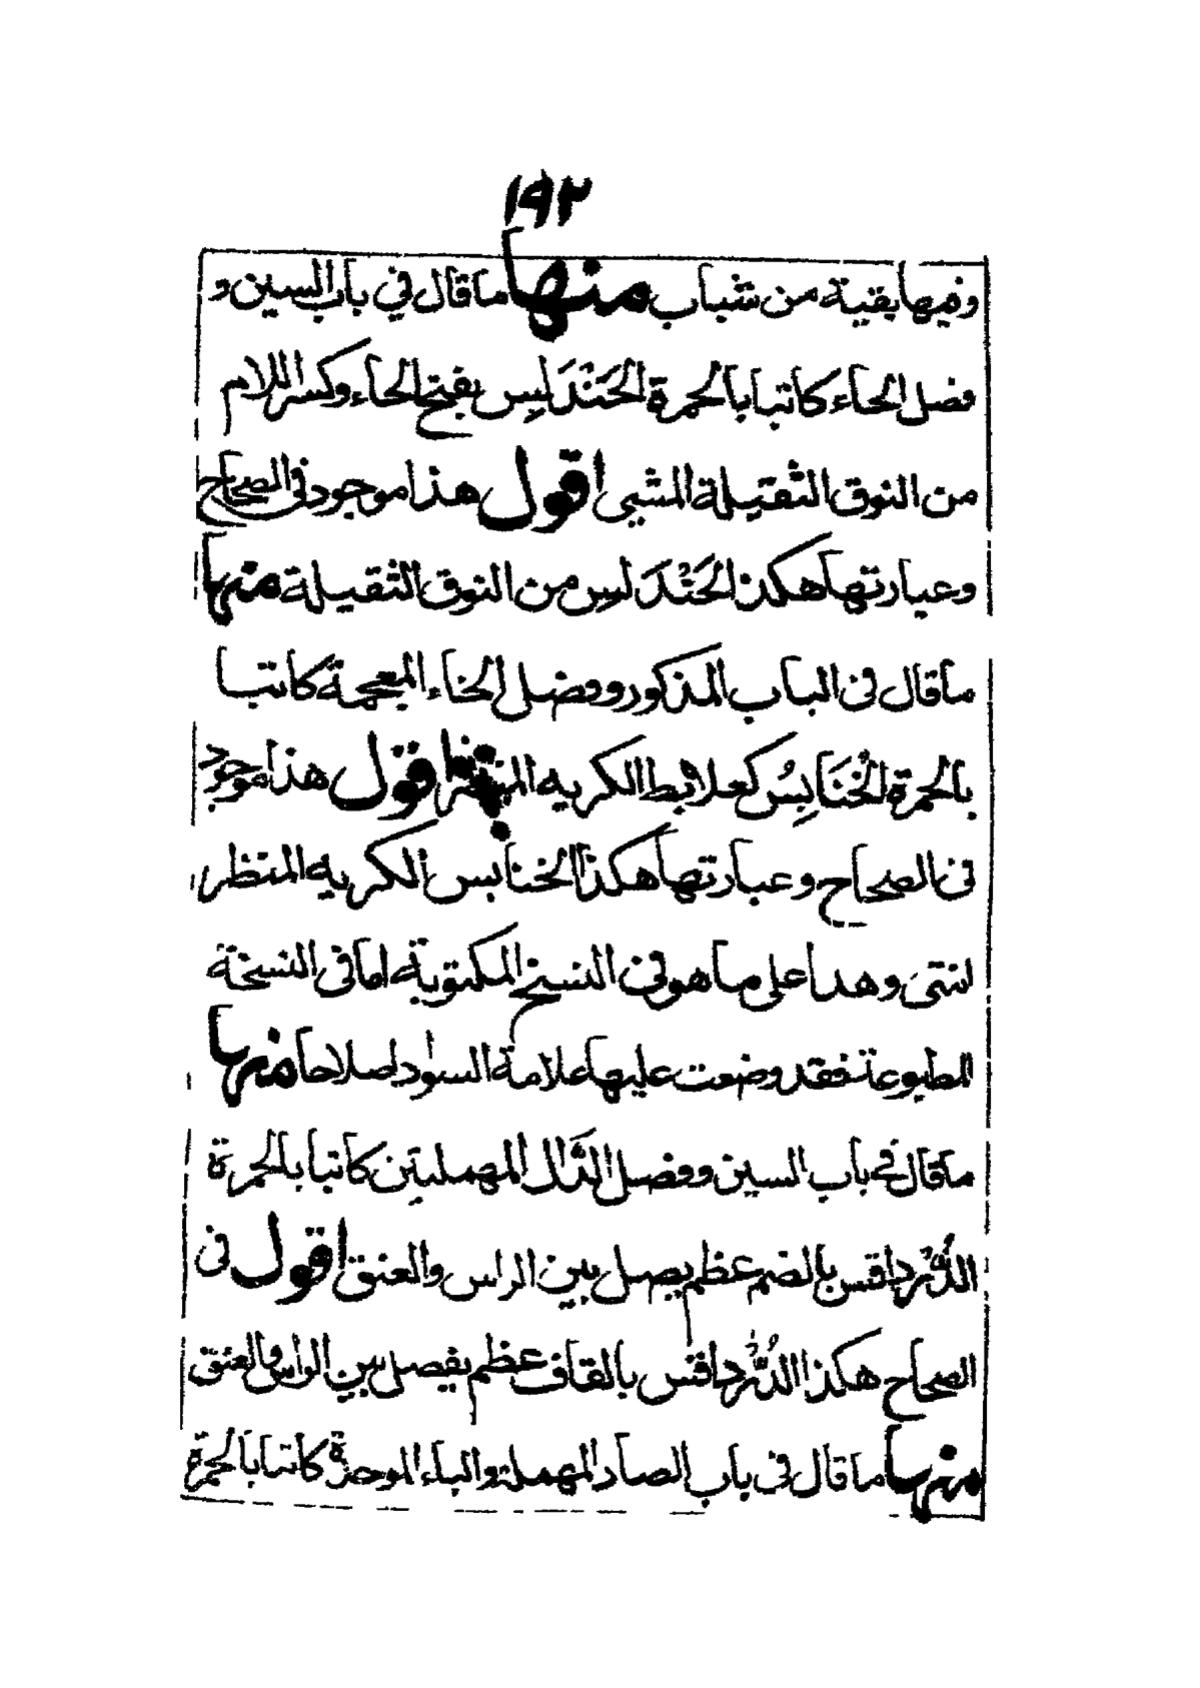 ١٩٢
وفيها بقية من شباب منها ما قال في باب السين و
فصل الحاء كاتبا بالحمرة الحَنْدَلِس بفتح الحاء وكسر اللام
من النوق الثقيلة المشي اقول هذا موجود في الصحاح
وعبارتها هكذا الحَنْدَلِس من النوق الثقيلة منها
ما قال في الباب المذكور وفصل الخاء المعجمة كاتبا
بالحمرة الخُنَابِسُ كعلابط الكريه المنظر اقول هذا موجود
في الصحاح وعبارتها هكذا الخنابس الكريه المنظر
انتهى وهذا على ما هو في النسخ المكتوبة اما في النسخة
المطبوعة فقد وضعت عليها علامة السواد اصلاحا منها
ما قال في باب السين وفصل الدال المهملتين كاتبا بالحمرة
الدُّرداقس بالضم عظم يصل بين الراس والعنق اقول في
الصحاح هكذا الدُّرداقس بالقاف عظم يفصل بين الراس والعنق
منها ما قال في باب الصاد المهملة والباء الموحدة كاتبا بالحمرة